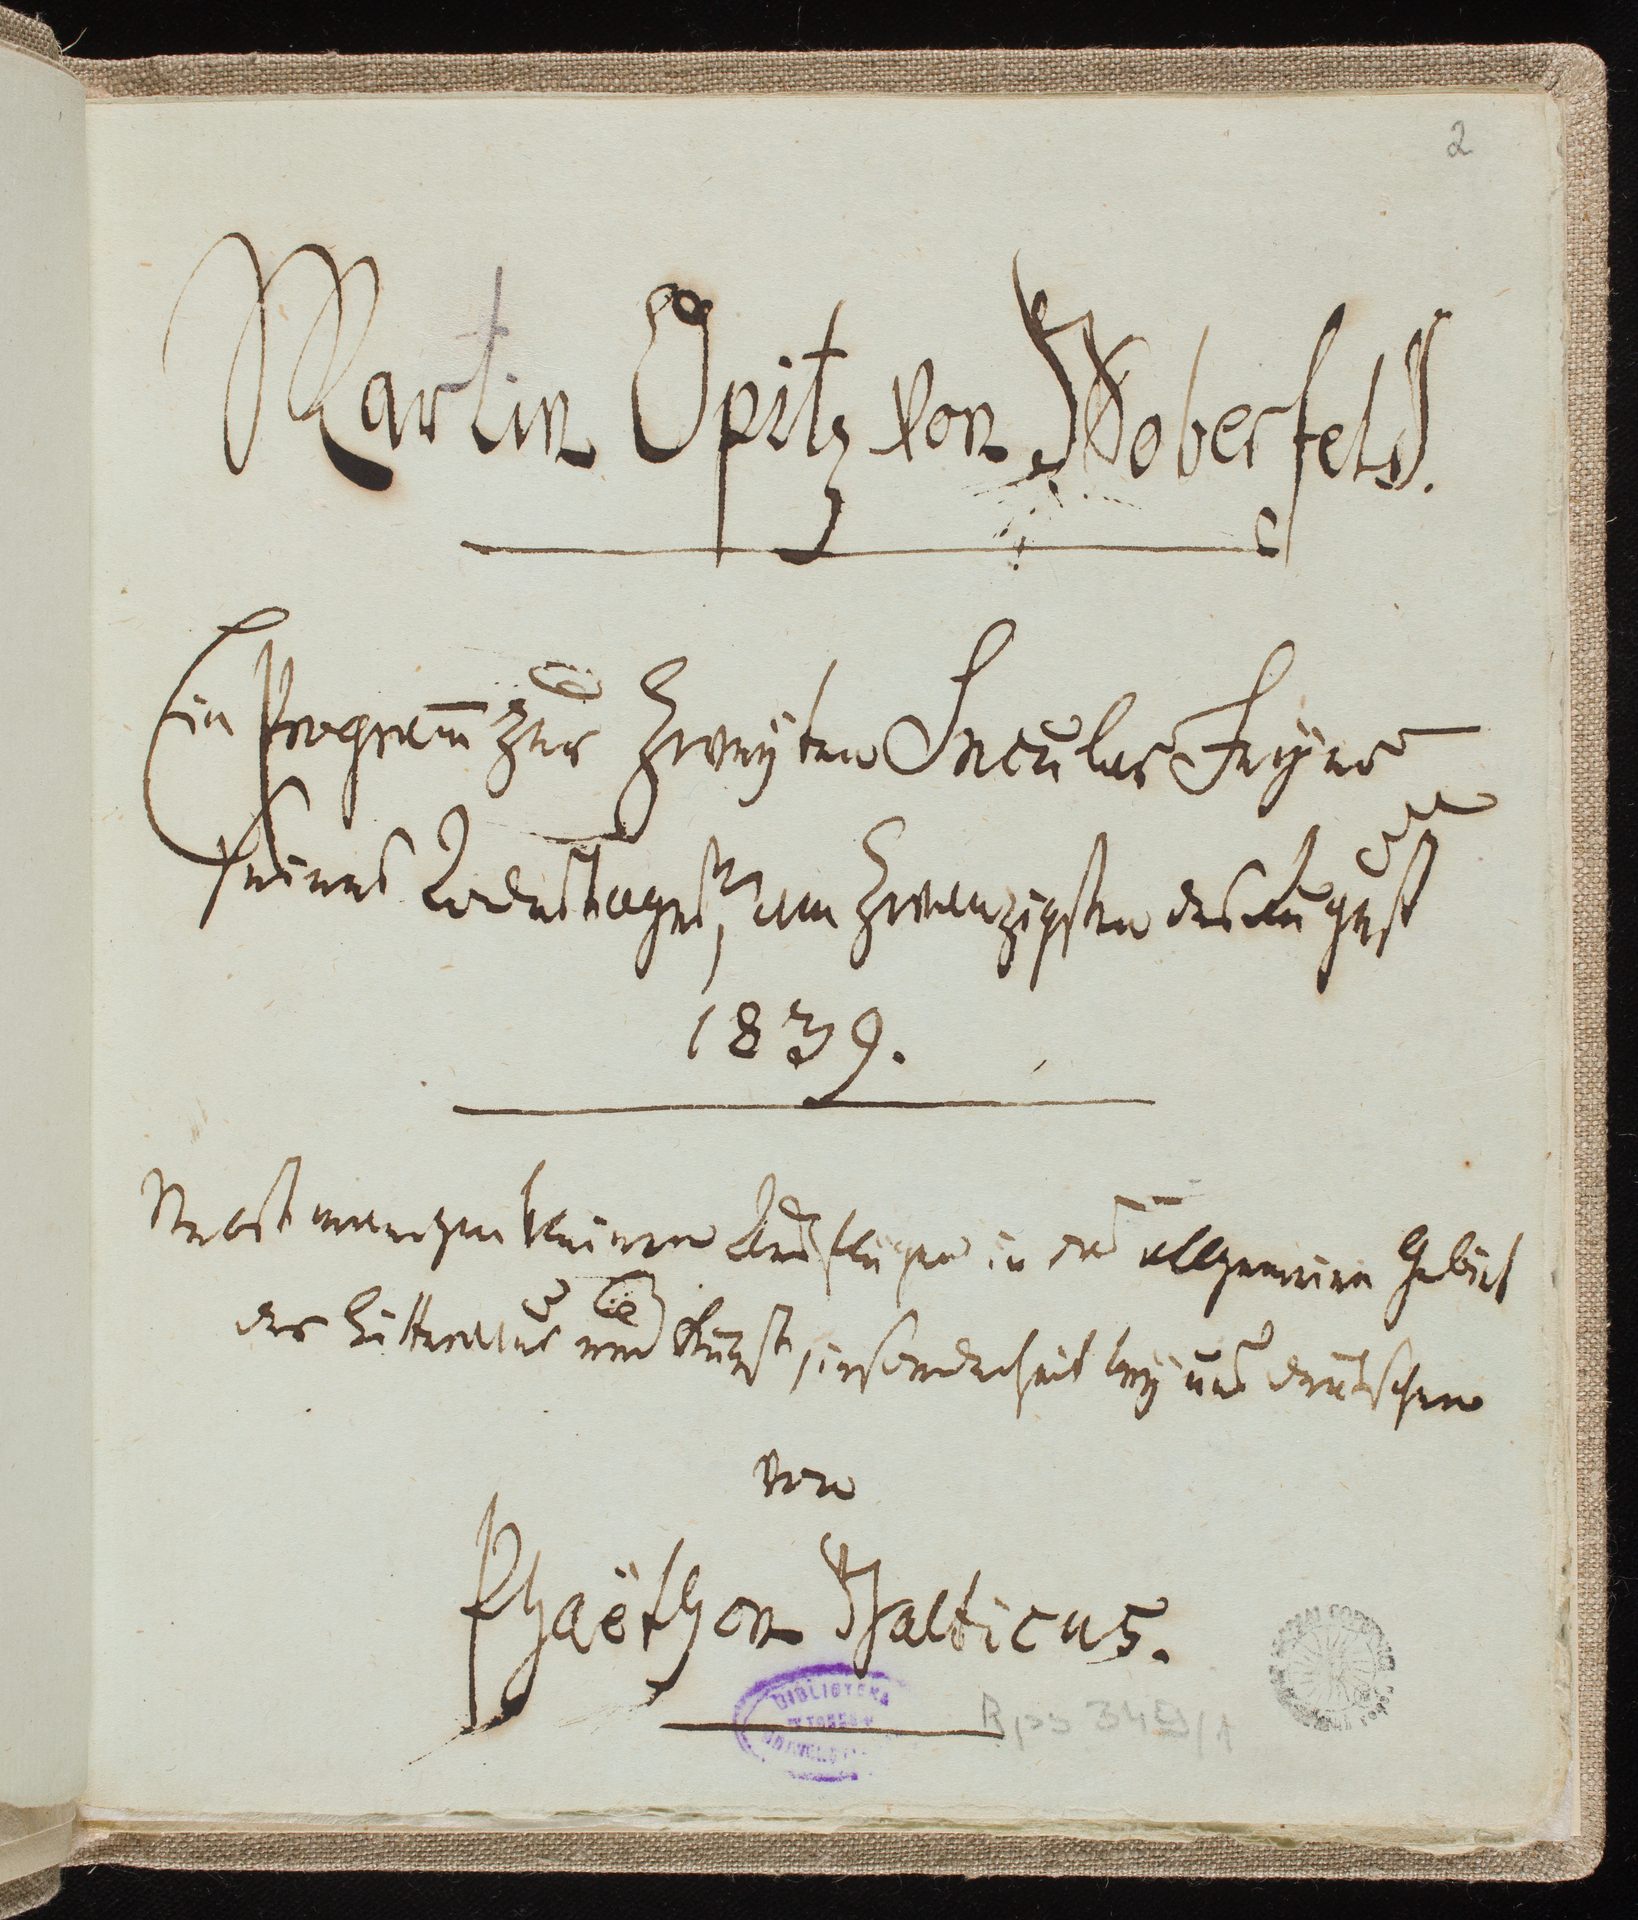 2
Martin Opitz von Boberfeld.
Ein Program̅ zur zweyten Secular Feyer
seines Todestages, am zwanzigsten des August
1839.
Nebst manchen kleinen Ausflügen in das allgemeine Gebiet
der Litteratur und Kunst, insonderheit bey uns deutschen
von
Phaëthon Balticus.
BIBLIOTEKA
W TORUNIU
Rps 345/1